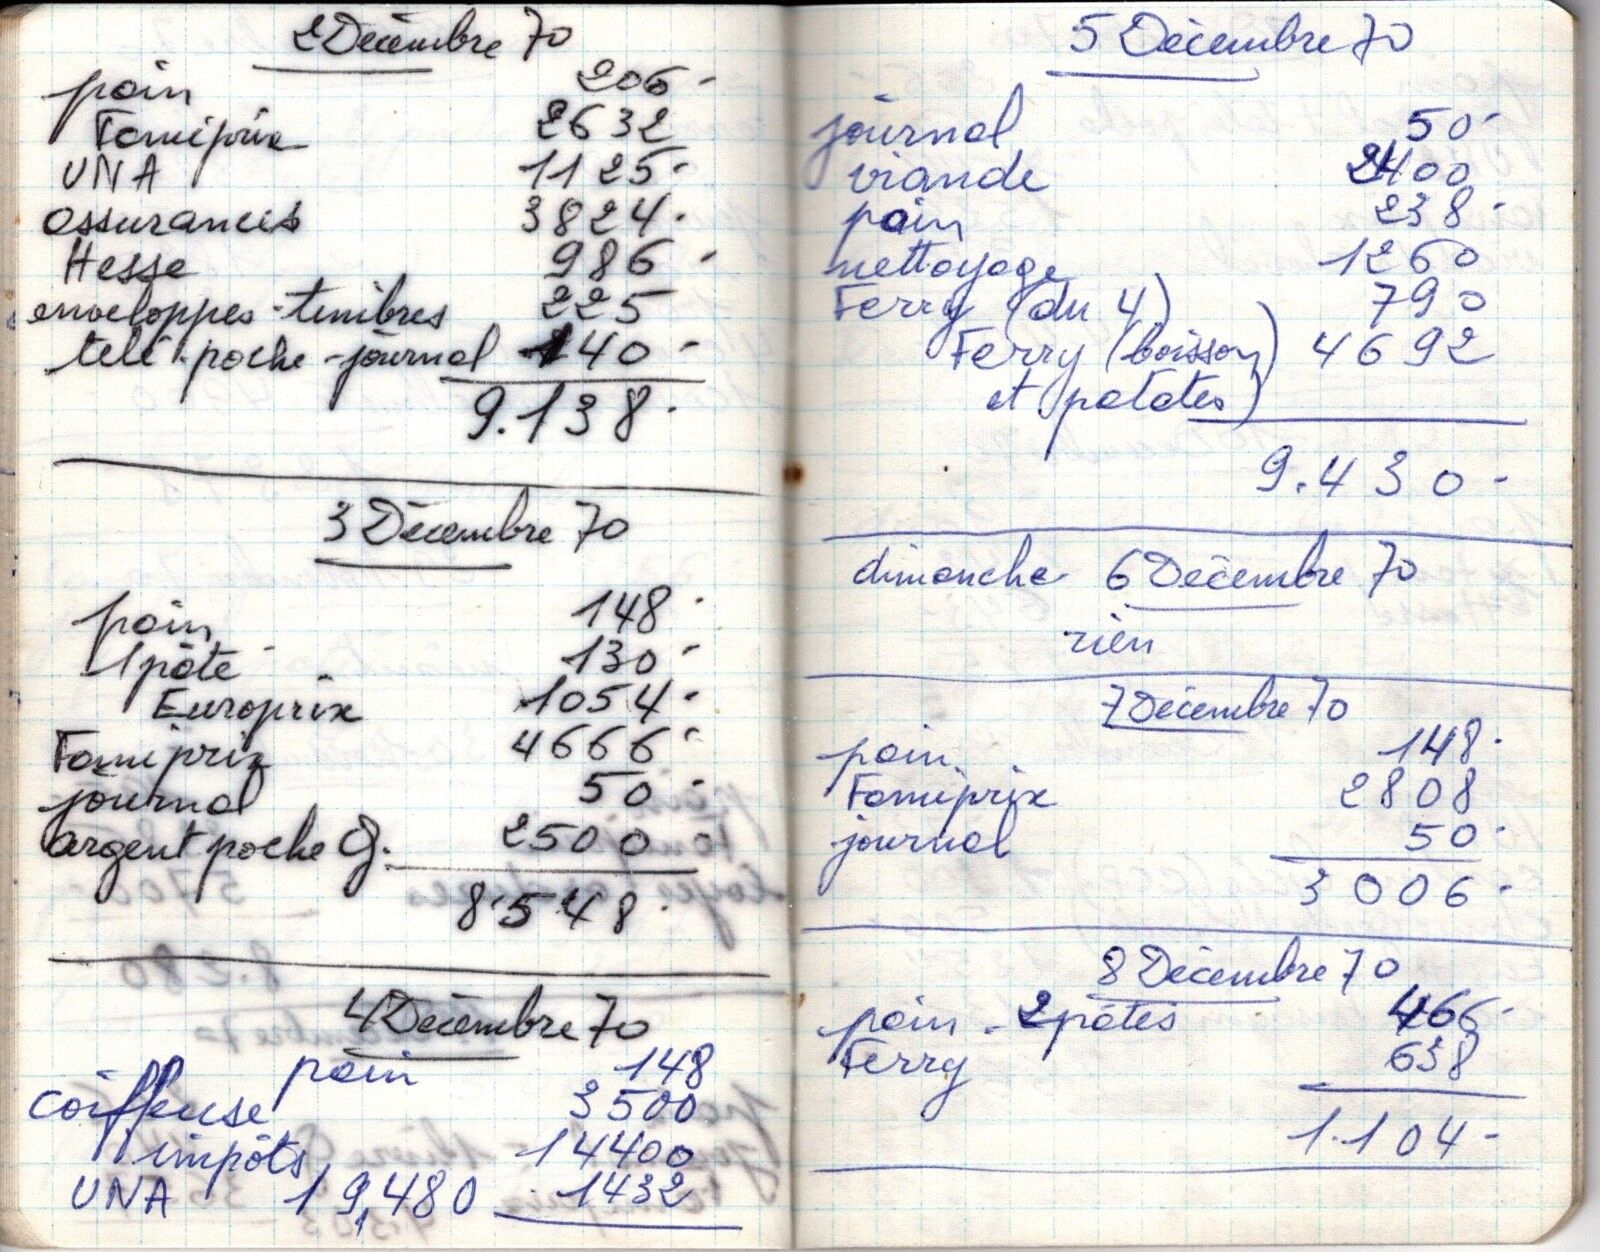 2 Décembre 70
pain 206-
Famiprix 2632
UNA 1125-
assurances 3824.
Hesse 986-
enveloppes-timbres 225
télé-poche-journal 140-
9.138.
3 Décembre 70
pain 148-
1 pâté 130-
Europrix 1054-
Famiprix 4666-
journal 50-
argent poche 2500
8.548.
4 Décembre 70
pain 148
coiffeuse 3500
impôts 14400
UNA 19,480 1432
5 Décembre 70
journal 50-
viande 2400
pain 238-
nettoyage 1260
Ferry (du 4) 790
Ferry (boisson 4692
et patates)
9.430-
dimanche 6 Décembre 70
rien
7 Décembre 70
pain 148.
Famiprix 2808
journal 50.
3006.
8 Décembre 70
pain - 2 pâtés 466-
Ferry 638
1.104-